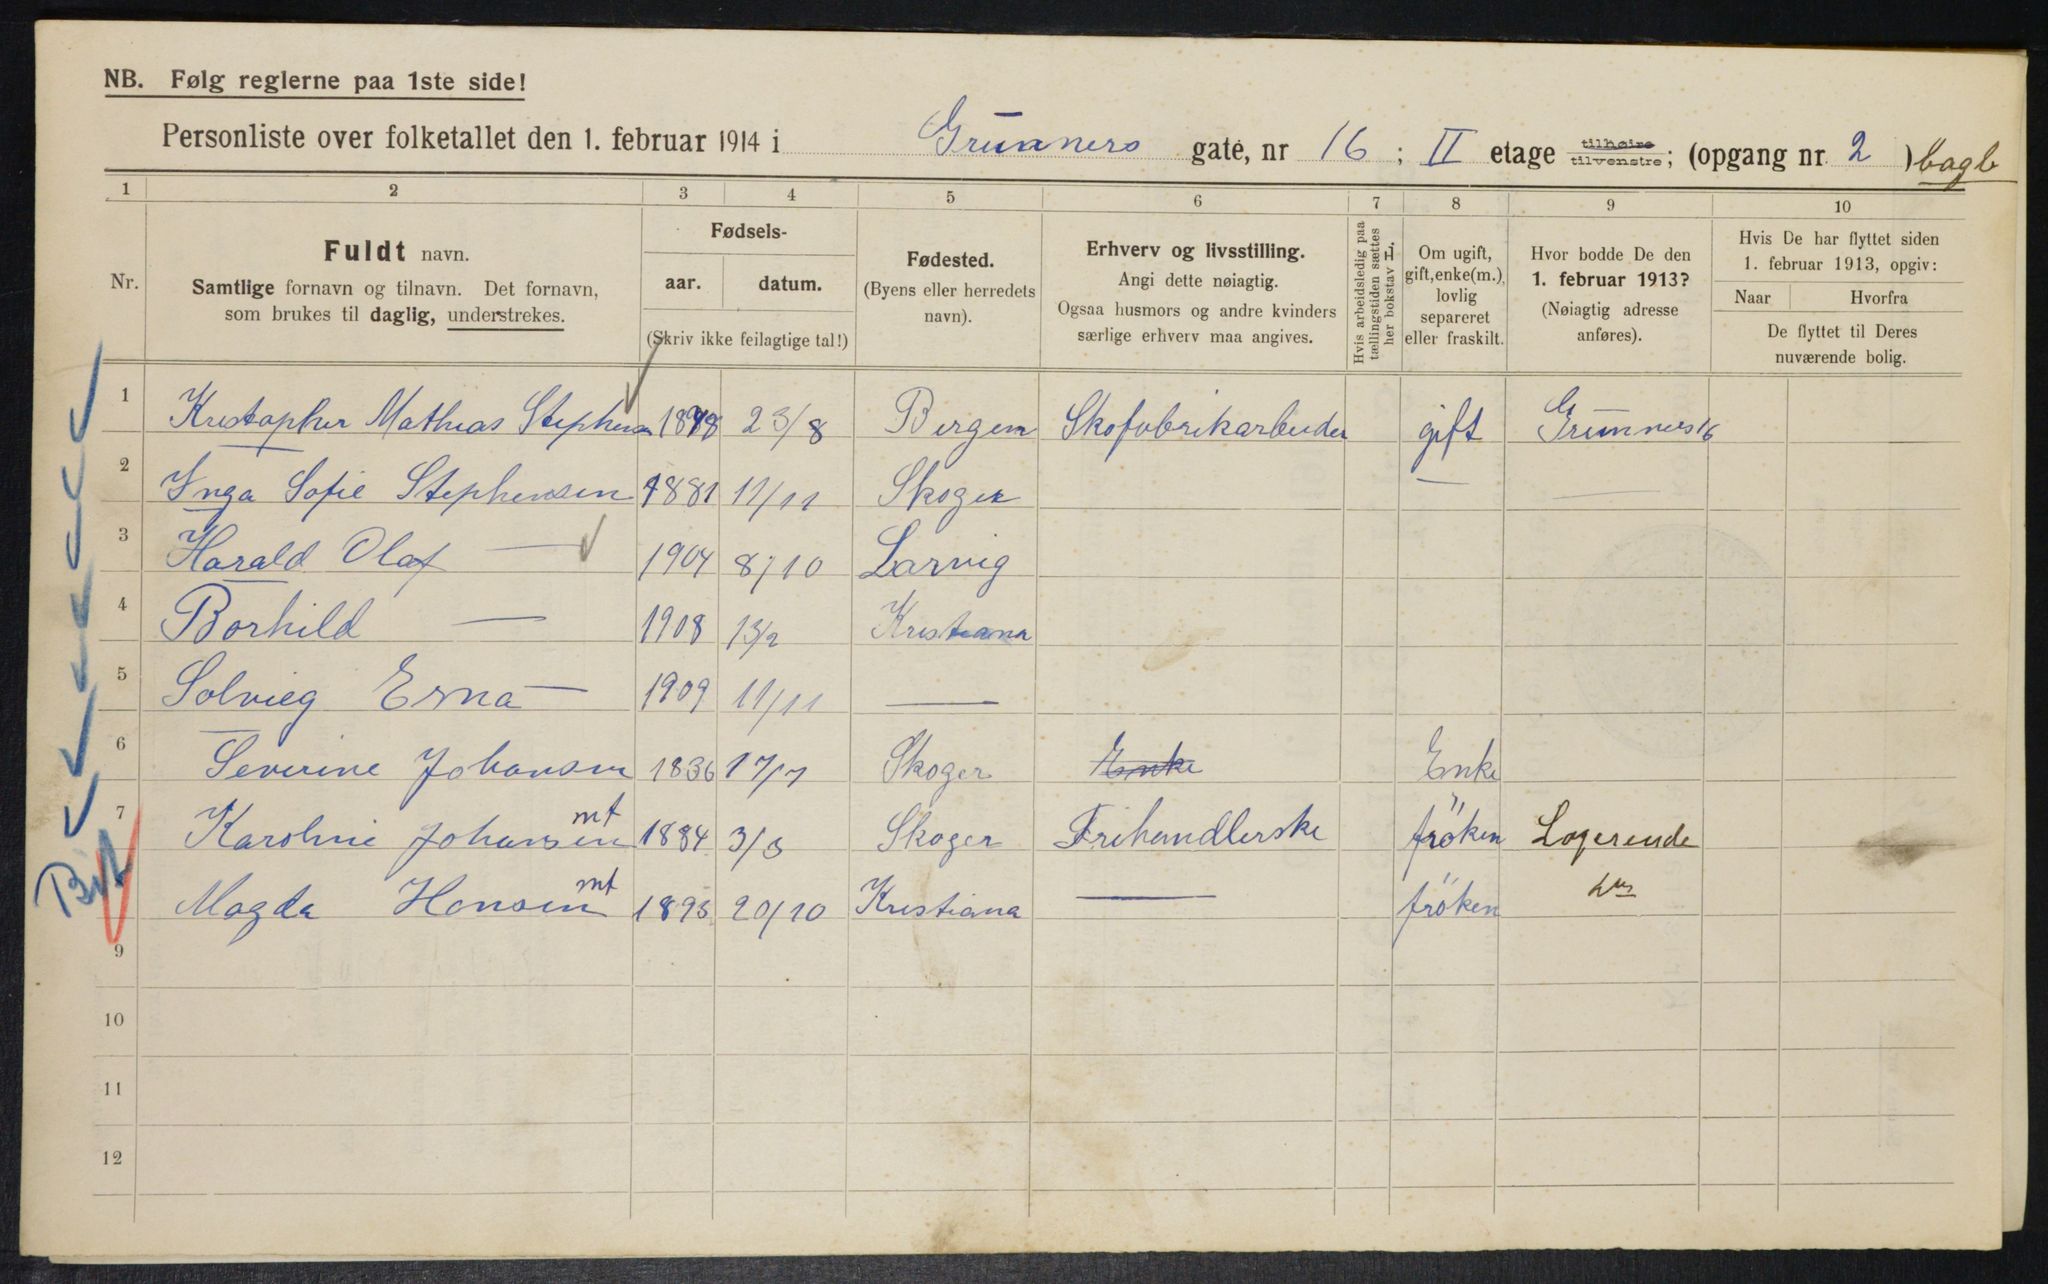 NB. Følg reglerne paa 1ste side!
Personliste over folketallet den 1. februar 1914 i Grünners gate, nr 16 ; II etage tilhøire tilvenstre; (opgang nr 2 ) bagb
1 2 3 4 5 6 7 8 9 10
Nr.
Fuldt navn.
Samtlige fornavn og tilnavn. Det fornavn,
som brukes til daglig, understrekes.
Fødsels-
aar. datum.
(Skriv ikke feilagtige tal!)
Fødested.
(Byens eller herredets
navn).
Erhverv og livsstilling.
Angi dette nøiagtig.
Ogsaa husmors og andre kvinders
særlige erhverv maa angives.
Hvis arbeidsledig paa
tællingstiden sættes
her bokstav L.
Om ugift,
gift, enke(m.),
lovlig
separeret
eller fraskilt.
Hvor bodde De den
1. februar 1913?
(Nøiagtig adresse
anføres).
Hvis De har flyttet siden
1. februar 1913, opgiv:
Naar Hvorfra
De flyttet til Deres
nuværende bolig.
1 Kristopher Mathias Stephensen 23/8 Bergen Skofabrikarbeider gift Grünners 16
2 Inga Sofie Stephensen 1881 11/11 Skoger — —
3 Harald Olaf — 1904 8/10 Larvig
4 Borhild — 1908 13/2 Kristiana
5 Solvieg Erna — 1909 11/11 —
6 Severine Johansen 1836 17/7 Skoger Enke Enke
7 Karoline Johansen mt 1884 3/3 Skoger Frihandlerske fröken Logerende
Magda Hansen mt 1893 20/10 Kristiana — fröken
9
10
11
12